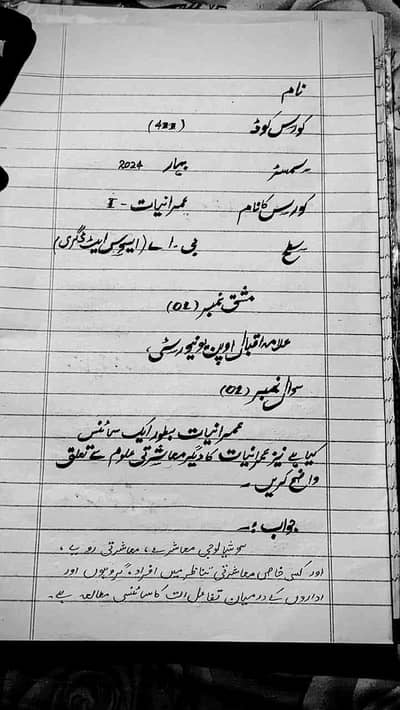 نام
کورس کوڈ (422)
سمسٹر بہار 2024
کورس کا نام عمرانیات - I
سطح بی۔اے (ایسوسی ایٹ ڈگری)
مشق نمبر (02)
علامہ اقبال اوپن یونیورسٹی
سوال نمبر (02)
عمرانیات بطور ایک سائنس
کیا ہے نیز عمرانیات کا دیگر معاشرتی علوم سے تعلق
واضح کریں۔
جواب :۔
سوشیالوجی معاشرے، معاشرتی رویے،
اور کسی خاص معاشرتی تناظر میں افراد، گروہوں اور
اداروں کے درمیان تفاعل ات کا سائنسی مطالعہ ہے۔